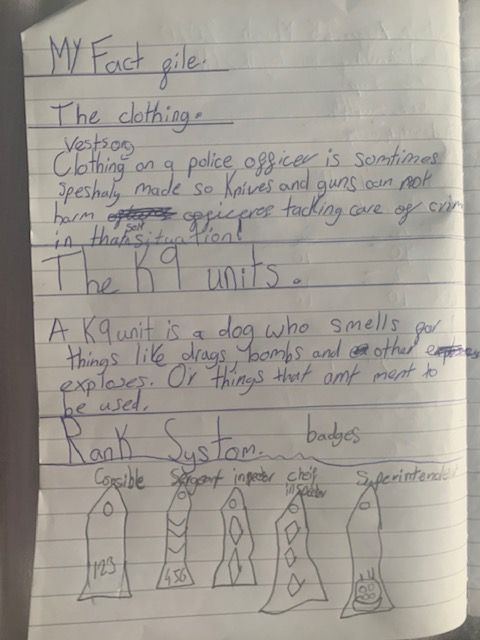 MY Fact gile.
The clothing.
Vests or
Clothing on a police officer is somtimes
speshaly made so Knives and guns can not
harm officeres tacking care of crim
in that situation!
The K9 units.
A K9 unit is a dog who smells gor
things like drags, bombs and other
exploses. Or things that arnt ment to
be used.
Rank System. badges
Consible Sergent inspecter cheif inspecter Superintender
123 456